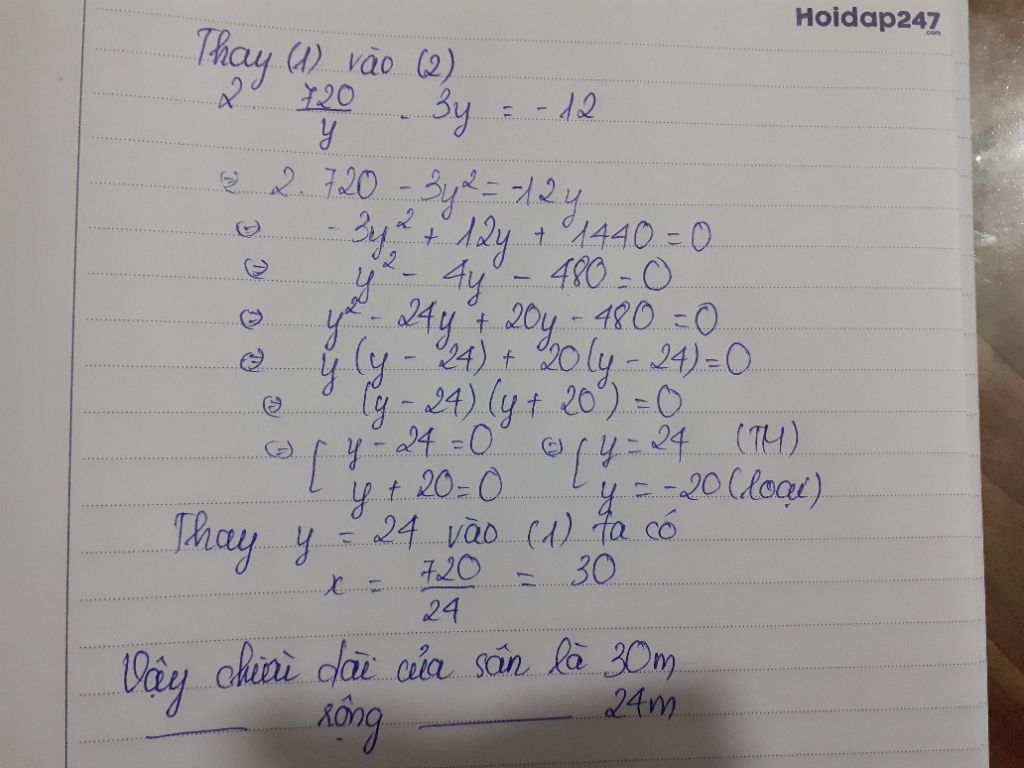 Hoidap247
.com
Thay (1) vào (2)
2. 720/y - 3y = -12
⇔ 2. 720 - 3y² = -12y
⇔ -3y² + 12y + 1440 = 0
⇔ y² - 4y - 480 = 0
⇔ y² - 24y + 20y - 480 = 0
⇔ y (y - 24) + 20 (y - 24) = 0
⇔ (y - 24) (y + 20) = 0
⇔ [ y - 24 = 0 ⇔ [ y = 24 (TM)
y + 20 = 0 y = -20 (loại)
Thay y = 24 vào (1) ta có
x = 720/24 = 30
Vậy chiều dài của sân là 30m
____ rộng ____ 24m